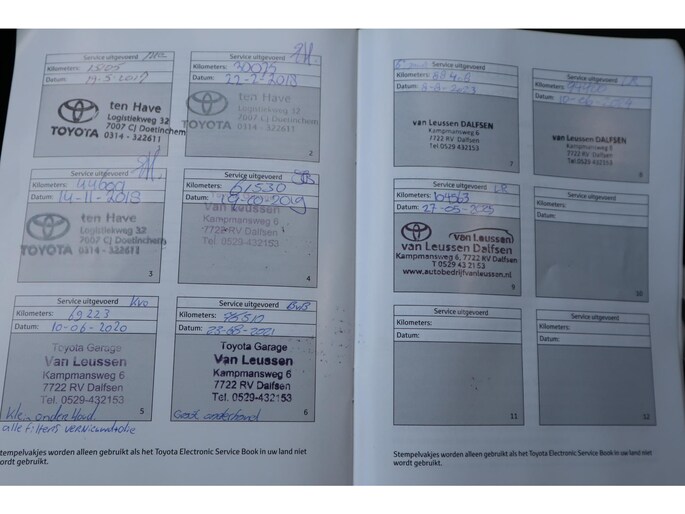 Service uitgevoerd
Kilometers: 1505
Datum: 19-5-2017
TOYOTA
ten Have
Logistiekweg 32
7007 CJ Doetinchem
0314 - 322611
Service uitgevoerd
Kilometers: 30075
Datum: 22-2-2018
TOYOTA
ten Have
Logistiekweg 32
7007 CJ Doetinchem
0314 - 322611
2
Service uitgevoerd
Kilometers:
Datum: 14-11-2018
TOYOTA
ten Have
Logistiekweg 32
7007 CJ Doetinchem
0314 - 322611
3
Service uitgevoerd
Kilometers: 61530
Datum:
Van Leussen
Kampmansweg 6
7722 RV Dalfsen
Tel. 0529-432153
4
Service uitgevoerd Kvo
Kilometers: 69223
Datum: 10-06-2020
Toyota Garage
Van Leussen
Kampmansweg 6
7722 RV Dalfsen
Tel. 0529-432153
5
Klein onderhoud
alle filters vernieuwd
Service uitgevoerd BvB
Kilometers:
Datum: 23-08-2021
Toyota Garage
Van Leussen
Kampmansweg 6
7722 RV Dalfsen
Tel. 0529-432153
6
Groot onderhoud
Stempelvakjes worden alleen gebruikt als het Toyota Electronic Service Book in uw land niet
wordt gebruikt.
Service uitgevoerd
Kilometers:
Datum: 8-8-2023
van Leussen DALFSEN
Kampmansweg 6
7722 RV Dalfsen
Tel.0529 432153
7
Service uitgevoerd LR
Kilometers:
Datum:
van Leussen DALFSEN
Kampmansweg 6
7722 RV Dalfsen
Tel.0529 432153
8
Service uitgevoerd LR
Kilometers: 104563
Datum: 27-05-2025
van Leussen
van Leussen Dalfsen
Kampmansweg 6, 7722 RV Dalfsen
T 0529 43 21 53
www.autobedrijfvanleussen.nl
9
Service uitgevoerd
Kilometers:
Datum:
10
Service uitgevoerd
Kilometers:
Datum:
11
Service uitgevoerd
Kilometers:
Datum:
12
Stempelvakjes worden alleen gebruikt als het Toyota Electronic Service Book in uw land niet
wordt gebruikt.